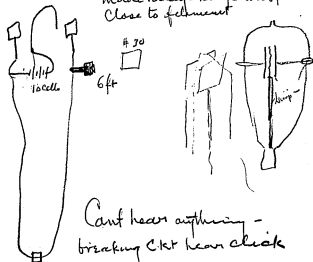 Close to filament
# 30
10 cells
6 ft
Cant hear anything -
breaking Ckt hear click